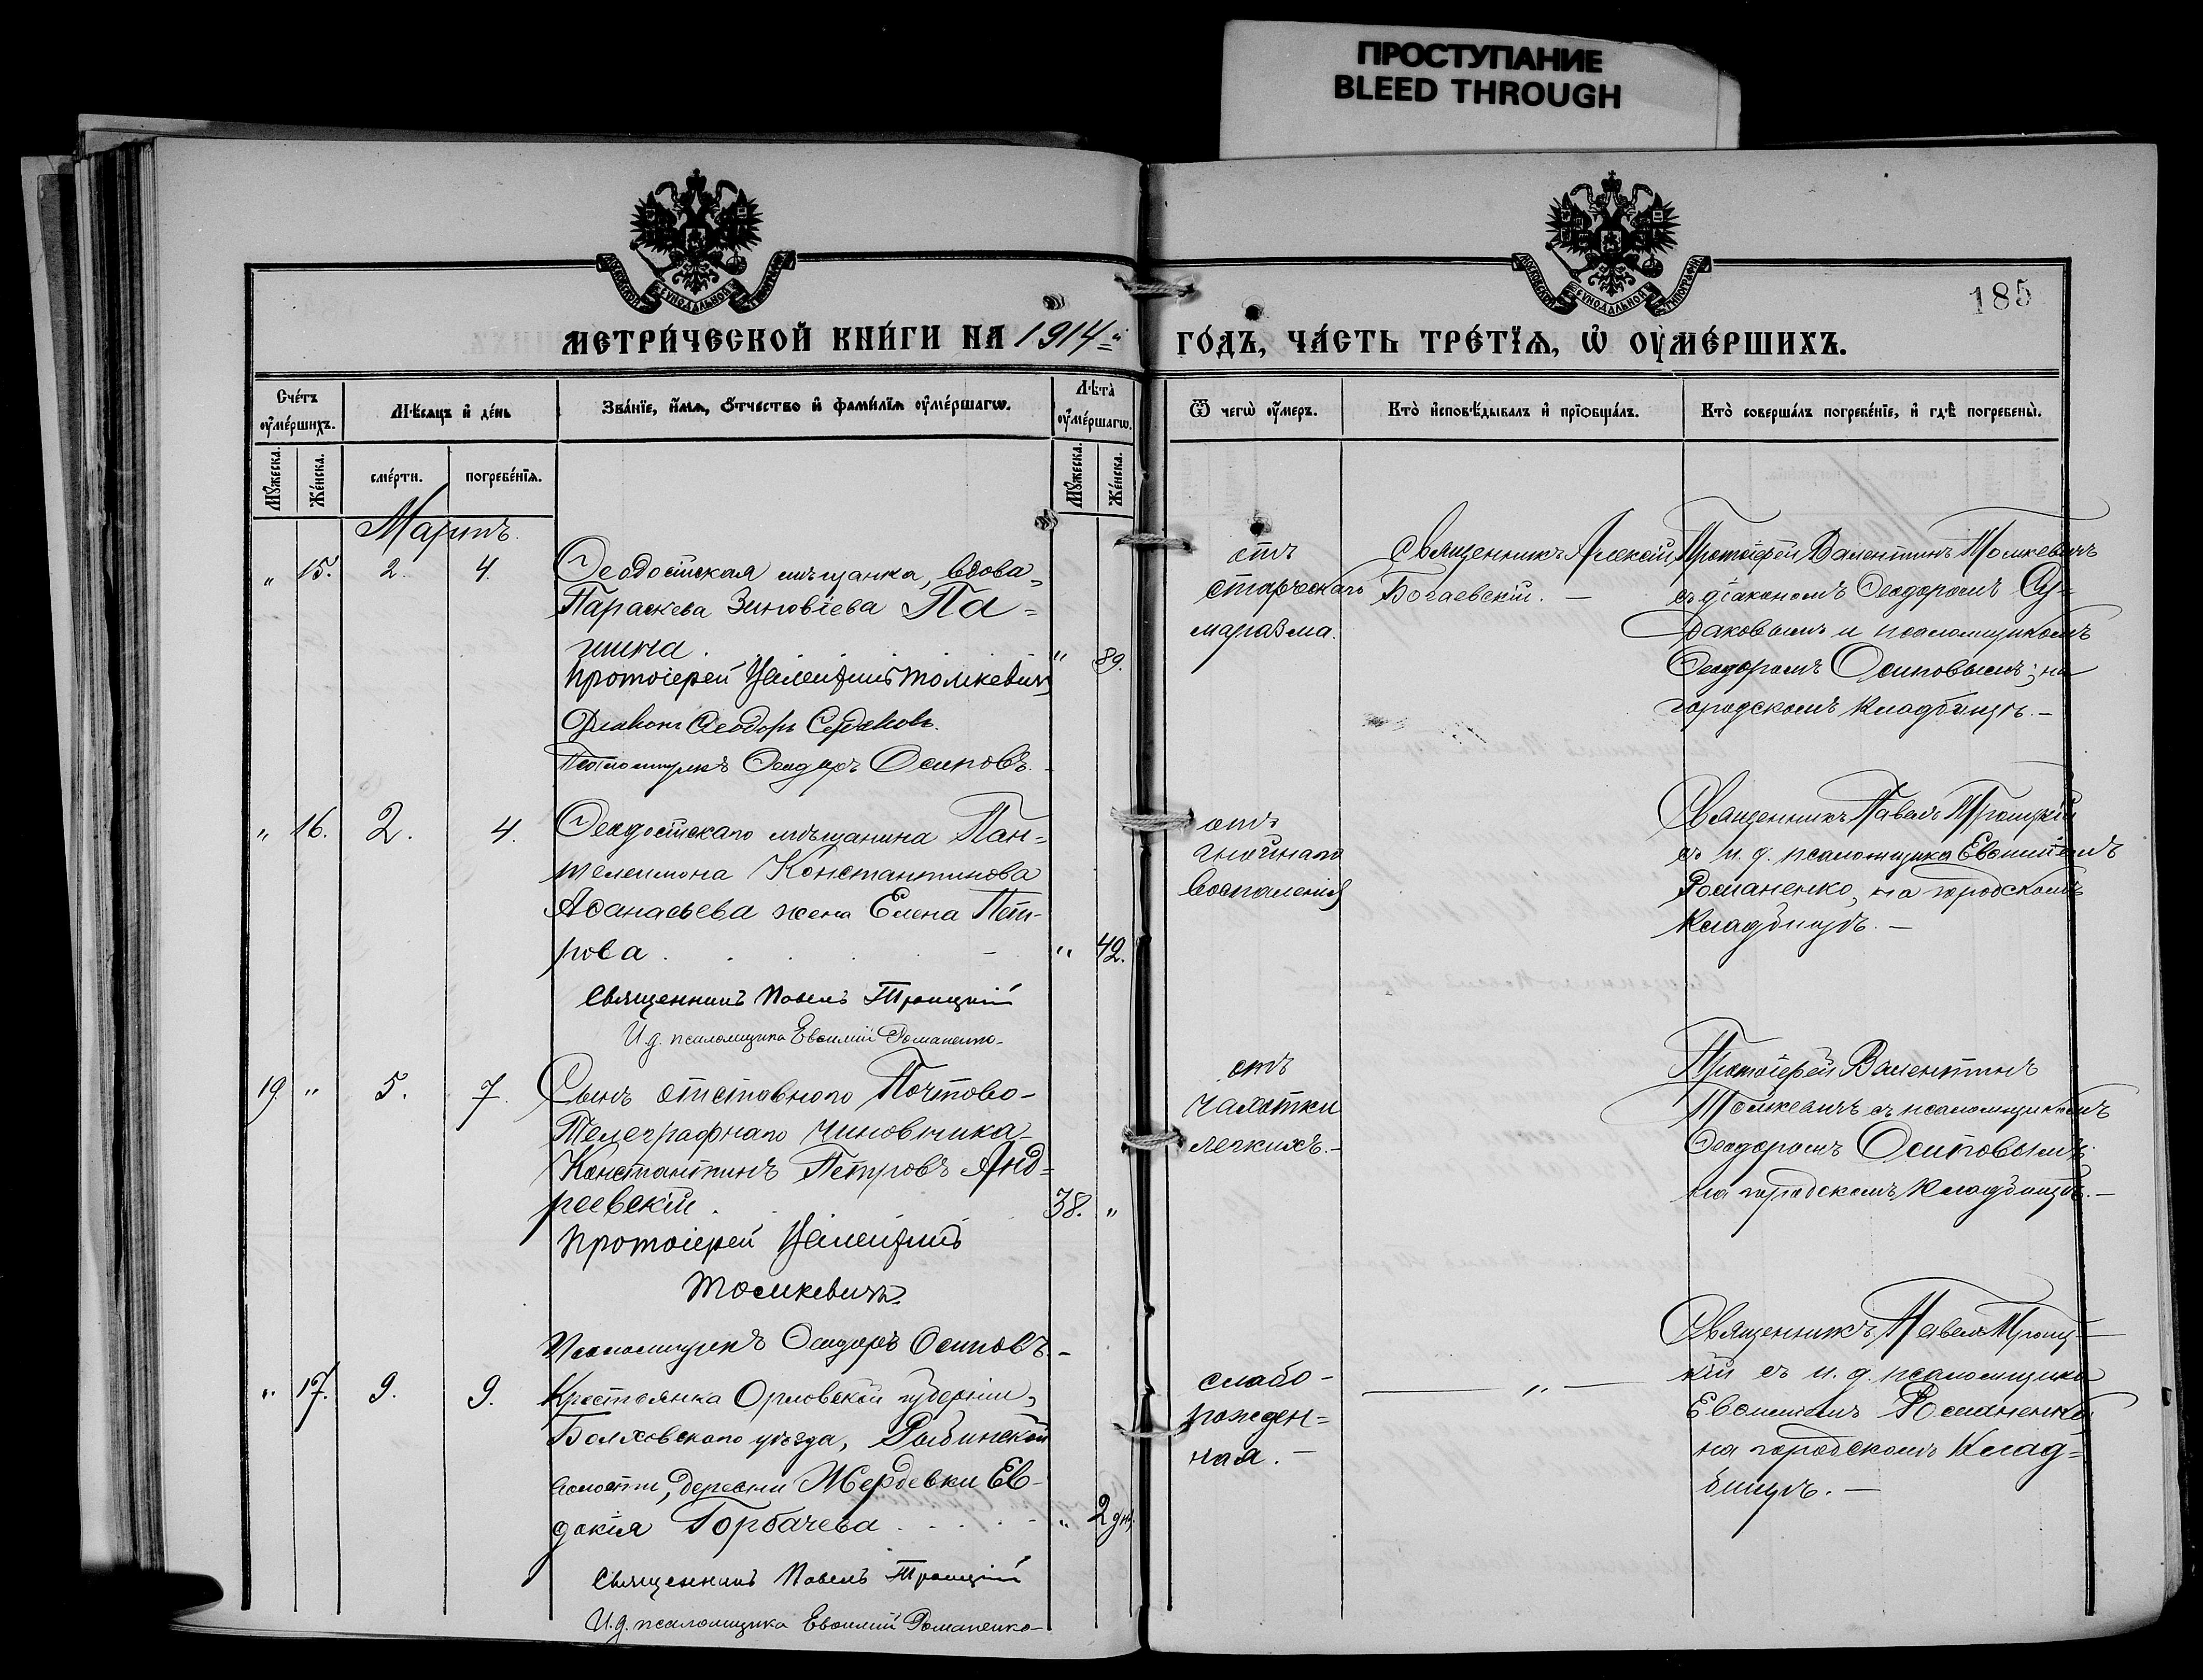 ПРОСТУПАНИЕ
BLEED THROUGH
МОСКОВСКОЙ СѴНОДАЛЬНОЙ ТИПОГРАФІИ
МОСКОВСКОЙ СѴНОДАЛЬНОЙ ТИПОГРАФІИ
185
МЕТРИ́ЧЕСКОЙ КНИ́ГИ НА 1914 ГО́ДЪ, ЧА́СТЬ ТРЕ́ТЇѦ, Ѡ ОУ҆МЕ́РШИХЪ.
Сче́тъ оу҆ме́ршихъ.
Мѣ́сяцъ и҆ де́нь
Зва́нїе, и҆́мѧ, ѻ҆́тчество и҆ фамі́лїѧ оу҆ме́ршагѡ.
Лѣ́та̀ оу҆ме́ршагѡ.
Ѿ чегѡ̀ оу҆́меръ.
Кто̀ и҆сповѣ́дывалъ и҆ прїѡбща́лъ.
Кто̀ соверша́лъ погребе́нїе, и҆ гдѣ̀ погребены̀.
Мꙋ́жеска.
Же́нска.
сме́рти.
погребе́нїѧ.
Мꙋ́жеска.
Же́нска.
Мартъ.
" 15. 2. 4.
Ѳеодосійская мѣщанка, вдова
Параскева Зиновіева Па=
шина. " 89.
Протоіерей Валентинъ Томкевичъ
Діаконъ Ѳеодоръ Судаковъ.
Псаломщикъ Ѳеодоръ Осиповъ.
отъ
старческаго
маразма.
Священникъ Алексій
Богаевскій. —
Протоіерей Валентинъ Томкевичъ
съ діакономъ Ѳеодоромъ Су-
даковымъ и псаломщикомъ
Ѳеодоромъ Осиповымъ; на
городскомъ кладбищѣ. —
" 16. 2. 4.
Ѳеодосійскаго мѣщанина Пан-
телеимона Константинова
Аѳанасьева жена Елена Пет-
рова. " 42.
Священникъ Павелъ Троицкій
И.д. псаломщика Евѳимій Романенко
отъ
гнойнаго
воспаленія
Священникъ Павелъ Троицкій
съ и. д. псаломщика Евѳиміемъ
Романенко, на городскомъ
кладбищѣ. —
19. " 5. 7.
Сынъ отставного Почтово-
Телеграфнаго чиновника
Константинъ Петровъ Анд-
реевскій. 38. "
Протоіерей Валентинъ
Томкевичъ.
Псаломщикъ Ѳеодоръ Осиповъ. —
отъ
чахотки
легкихъ. —
Протоіерей Валентинъ
Томкевичъ съ псаломщикомъ
Ѳеодоромъ Осиповымъ
на городскомъ кладбищѣ. —
" 17. 9. 9.
Крестьянка Орловской губерніи,
Болховскаго уѣзда, Рыбинской
волости, деревни Жердевки Ев-
докія Горбачева " 2 дн.
Священникъ Павелъ Троицкій
И.д. псаломщика Евѳимій Романенко
слабо-
рожден=
ная. —
— " —
Священникъ Павелъ Троиц-
кій съ и. д. псаломщика
Евѳиміемъ Романенко,
на городскомъ клад=
бищѣ. —